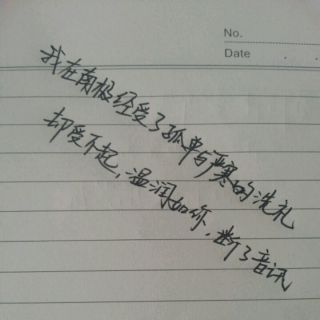 No.
Date
我在南极经受了孤单与严寒的洗礼
却受不起,温润如你,断了音讯